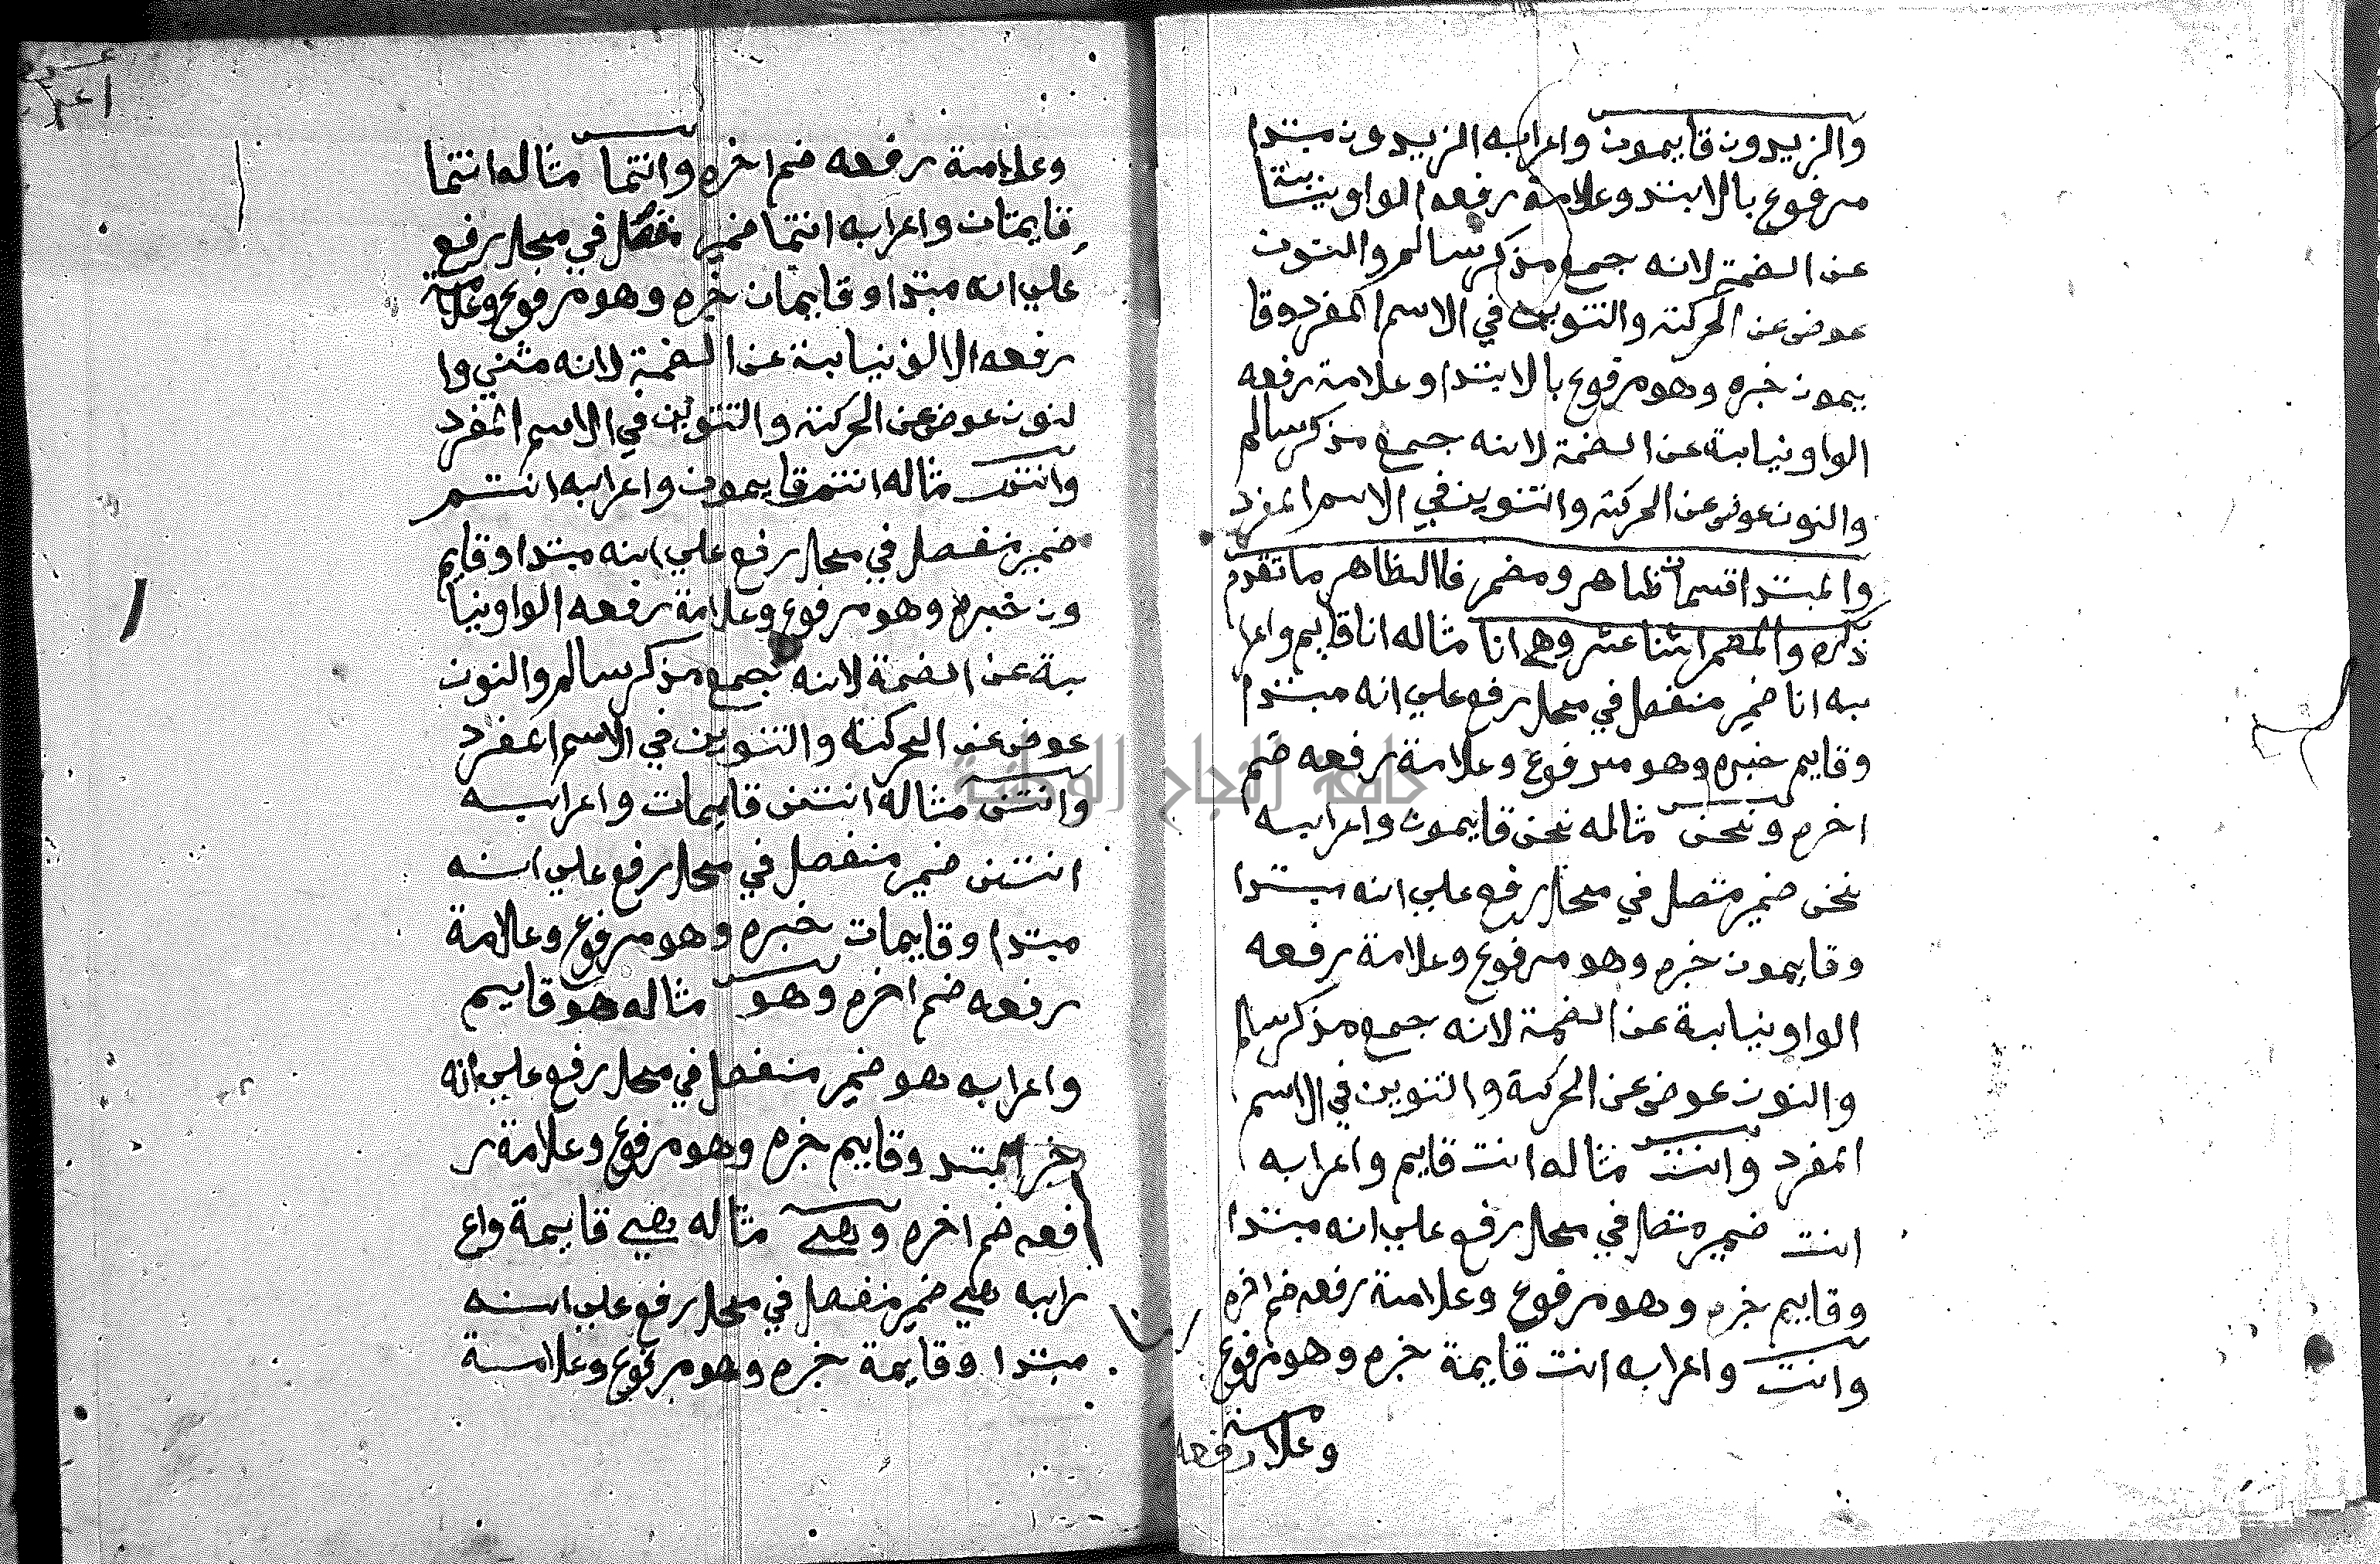 والزيدون قايمون واعرابه الزيدون مبتدا
مرفوع بالابتد وعلامة رفعه الواو نيابتا
عن الضمة لانه جمع مذكر سالم والنون
عوض عن الحركة والتنوين في الاسم المفرد وقا
يمون خبره وهو مرفوع بالابتدا وعلامة رفعه
الواو نيابة عن الضمة لانه جمع مذكر سالم
والنون عوض عن الحركة والتنوين في الاسم المفرد
والمبتدا قسمان ظاهر ومضمر فاالظاهر ما تقدم
ذكره والمضمر اثنا عشر وهي انا مثاله انا قايم واعرا
به انا ضمير منفصل في محل رفع علي انه مبتدا
وقايم خبره وهو مرفوع وعلامة رفعه ضم
اخره ونحن مثاله نحن قايمون واعرابه
نحن ضمير متصل في محل رفع علي انه مبتدا
وقايمون خبره وهو مرفوع وعلامة رفعه
الواو نيابة عن الضمة لانه جمع مذكر سالم
والنون عوض عن الحركة والتنوين في الاسم
المفرد وانت مثاله انت قايم واعرابه
انت ضمير متصل في محل رفع علي انه مبتدا
وقايم خبره وهو مرفوع وعلامة رفعه ضم اخره
وانت واعرابه انت قايمة خبره وهو مرفوع
وعلامة رفعه
وعلامة رفعه ضم اخره وانتما مثاله انتما
قايمتان واعرابه انتما ضمير منفصل في محل رفع
علي انه مبتدا وقايمان خبره وهو مرفوع وعلامة
رفعه الالف نيابة عن الضمة لانه مثني وا
لنون عوض عن الحركة والتنوين في الاسم المفرد
وانتم مثاله انتم قايمون واعرابه انتم
ضمير منفصل في محل رفع علي انه مبتدا وقايم
ون خبره وهو مرفوع وعلامة رفعه الواو نيا
بة عن الضمة لانه جمع مذكر سالم والنون
عوض عن الحركة والتنوين في الاسم المفرد
وانتن مثاله انتن قايمات واعرابه
انتن ضمير منفصل في محل رفع علي انه
مبتدا وقايمات خبره وهو مرفوع وعلامة
رفعه ضم اخره وهو مثاله هو قايم
واعرابه هو ضمير منفصل في محل رفع علي انه
خبر المبتد وقايم خبره وهو مرفوع وعلامة ر
فعه ضم اخره وهي مثاله هي قايمة واع
رابه هي ضمير منفصل في محل رفع علي انه
مبتدا وقايمة خبره وهو مرفوع وعلامة
جامعة النجاح الوطنية